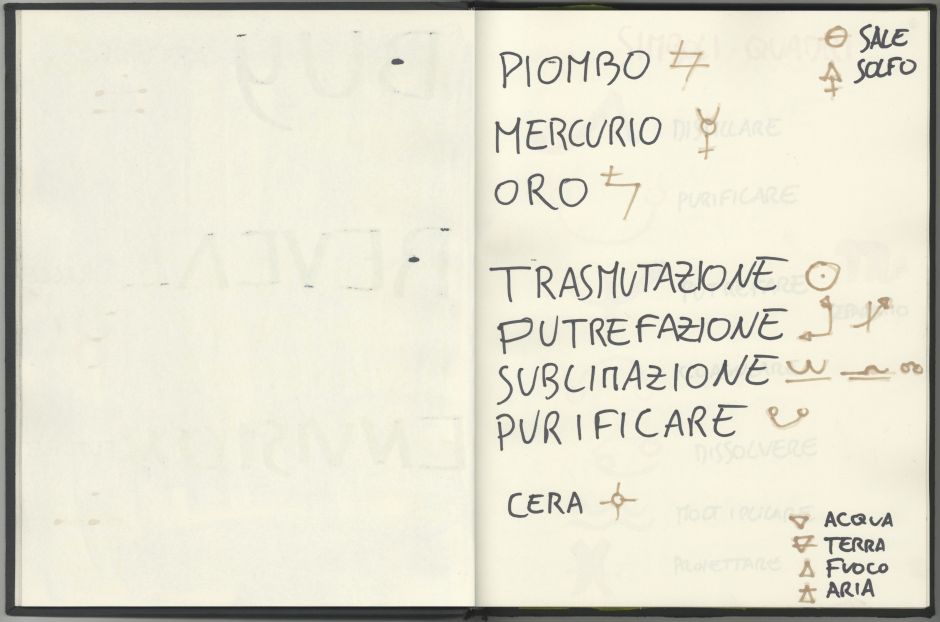 PIOMBO
MERCURIO
ORO
SALE
SOLFO
TRASMUTAZIONE
PUTREFAZIONE
SUBLIMAZIONE
PURIFICARE
CERA
ACQUA
TERRA
FUOCO
ARIA
DISTILLARE
PURIFICARE
DISSOLVERE